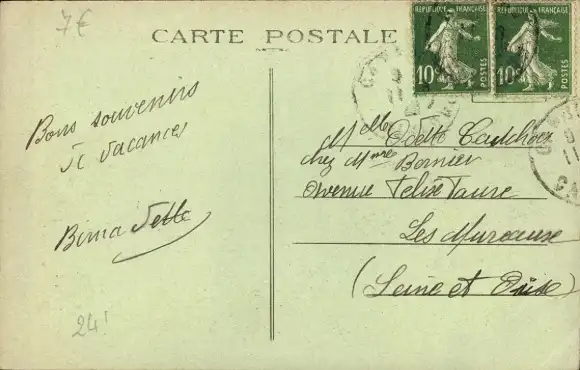 7€
CARTE POSTALE
RÉPUBLIQUE FRANÇAISE
10c POSTES
RÉPUBLIQUE FRANÇAISE
10c POSTES
Bons souvenirs
de vacances
Bernadette
24!
Melle Odette
chez Mme Bernier
Avenue Felix Faure
Les Mureaux
(Seine et Oise)